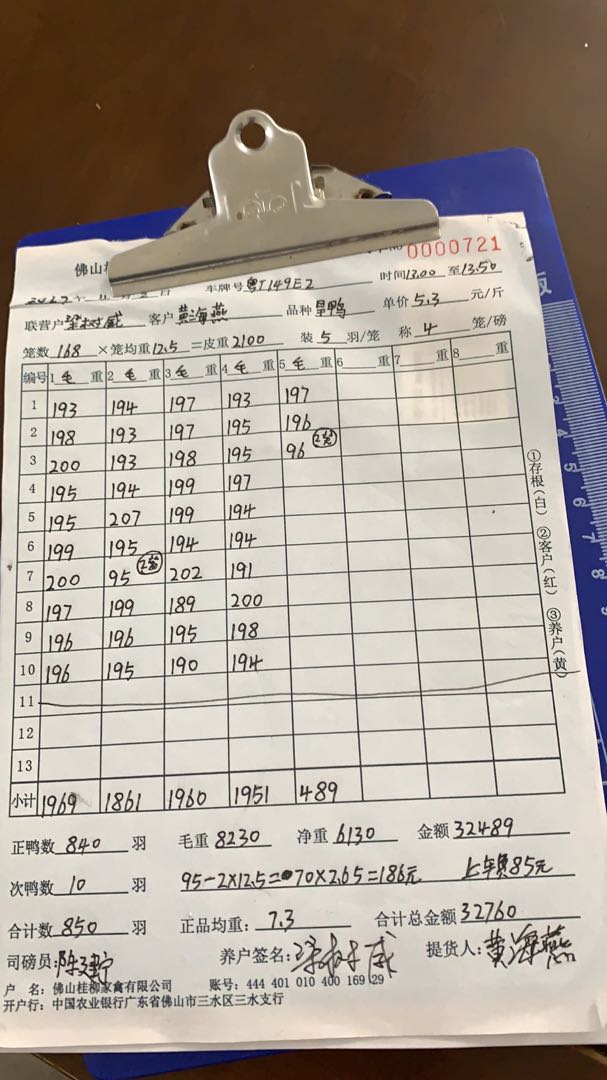 佛山桂
0000721
车牌号 粤T149E2 时间13.00 至13.50
联营户 梁树威 客户 黄海燕 品种 旱鸭 单价 5.3 元/斤
笼数 168 ×笼均重12.5 =皮重2100 装 5 羽/笼 称 4 笼/磅
编号 1 毛 重 2 毛 重 3 毛 重 4 毛 重 5 毛 重 6 重 7 重 8 重
1 193 194 197 193 197
2 198 193 197 195 196
3 200 193 198 195 96 2笼
4 195 194 199 197
5 195 207 199 194
6 199 195 194 194
7 200 95 2笼 202 191
8 197 199 189 200
9 196 196 195 198
10 196 195 190 194
11
12
13
小计 1969 1861 1960 1951 489
正鸭数 840 羽 毛重 8230 净重 6130 金额 32489
次鸭数 10 羽 95-2×12.5=70×2.65=186元 上车费85元
合计数 850 羽 正品均重: 7.3 合计总金额 32760
司磅员: 养户签名: 梁树威 提货人: 黄海燕
户 名: 佛山桂柳家禽有限公司 账号: 444 401 010 400 169 29
开户行: 中国农业银行广东省佛山市三水区三水支行
①存根(白) ②客户(红) ③养户(黄)